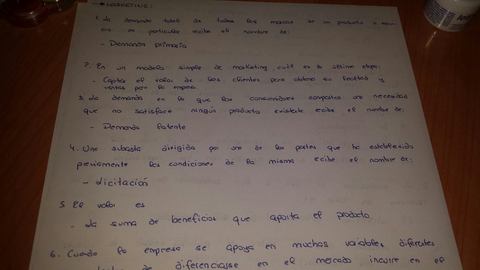 MARKETING:
1. La demanda total de todas las marcas de un producto o servi
cio en particular recibe el nombre de:
- Demanda primaria
2. En un modelo simple de marketing, cuál es la última etapa:
- Captar el valor de los clientes para obtener su lealtad y
ventas por la empresa
3. La demanda en la que los consumidores comparten una necesidad
que no satisface ningún producto existente recibe el nombre de:
- Demanda latente
4. Una subasta dirigida por una de las partes que ha establecido
previamente las condiciones de la misma recibe el nombre de:
- Licitación
5. El valor es
- La suma de beneficios que aporta el producto
6. Cuando la empresa se apoya en muchas variables diferentes
de diferenciarse en el mercado incurre en el